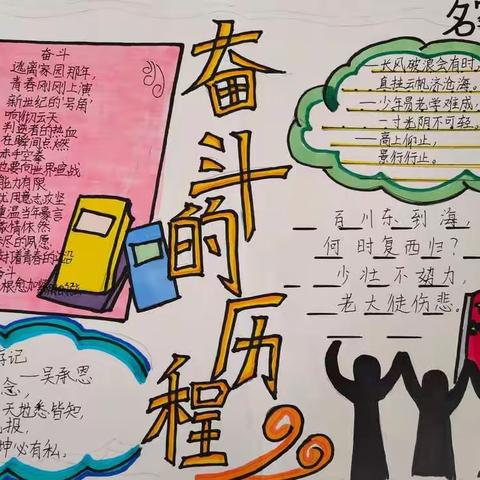 奋斗的历程
奋斗
逃离家园那年，
青春刚刚上演
新世纪的号角，
响彻云天
判逆者的热血
在瞬间点燃
赤手空拳
也要向世界宣战
能力有限
优用意志攻坚
重温当年豪言
激情依然
尽的夙愿
青春的
奋斗
名
长风破浪会有时，
直挂云帆济沧海。
少年易老学难成，
一寸光阴不可轻。
高上仰止，
景行行止。
百川东到海，
何时复西归？
少壮不努力，
老大徒伤悲。
游记
——吴承恩
念，
天地悉皆知，
报，
坤必有私。